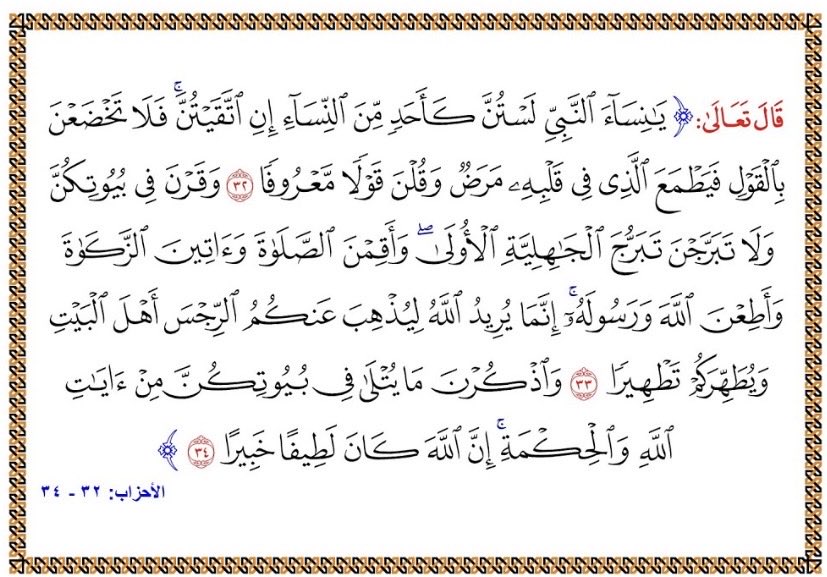 قَالَ تَعَالَىٰ: ﴿ يَٰنِسَآءَ ٱلنَّبِيِّ لَسْتُنَّ كَأَحَدٍ مِّنَ ٱلنِّسَآءِ إِنِ ٱتَّقَيْتُنَّۚ فَلَا تَخْضَعْنَ
بِٱلْقَوْلِ فَيَطْمَعَ ٱلَّذِى فِى قَلْبِهِۦ مَرَضٌ وَقُلْنَ قَوْلًا مَّعْرُوفًا ٣٢ وَقَرْنَ فِى بُيُوتِكُنَّ
وَلَا تَبَرَّجْنَ تَبَرُّجَ ٱلْجَٰهِلِيَّةِ ٱلْأُولَىٰۖ وَأَقِمْنَ ٱلصَّلَوٰةَ وَءَاتِينَ ٱلزَّكَوٰةَ
وَأَطِعْنَ ٱللَّهَ وَرَسُولَهُۥٓۚ إِنَّمَا يُرِيدُ ٱللَّهُ لِيُذْهِبَ عَنكُمُ ٱلرِّجْسَ أَهْلَ ٱلْبَيْتِ
وَيُطَهِّرَكُمْ تَطْهِيرًا ٣٣ وَٱذْكُرْنَ مَا يُتْلَىٰ فِى بُيُوتِكُنَّ مِنْ ءَايَٰتِ
ٱللَّهِ وَٱلْحِكْمَةِۚ إِنَّ ٱللَّهَ كَانَ لَطِيفًا خَبِيرًا ٣٤ ﴾
الأحزاب: ٣٢ - ٣٤